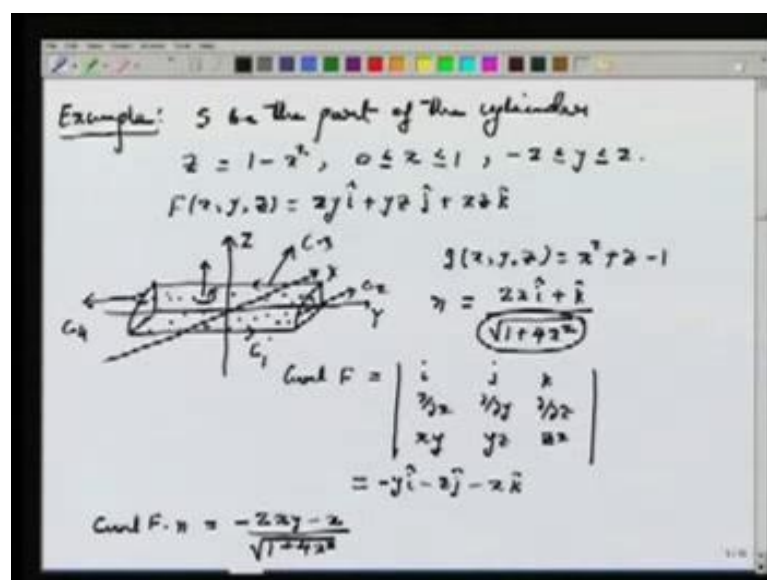 Example: S be the part of the cylinder
z = 1 - x², 0 ≤ x ≤ 1, -2 ≤ y ≤ 2.
F(x, y, z) = xy î + yz ĵ + xz k̂
Z
C3
X
C2
Y
C4
C1
g(x, y, z) = x² + z - 1
n = (2x î + k̂) / √(1+4x²)
Curl F = | i j k
∂/∂x ∂/∂y ∂/∂z
xy yz zx |
= -y î - z ĵ - x k̂
Curl F. n = (-2xy - x) / √(1+4x²)